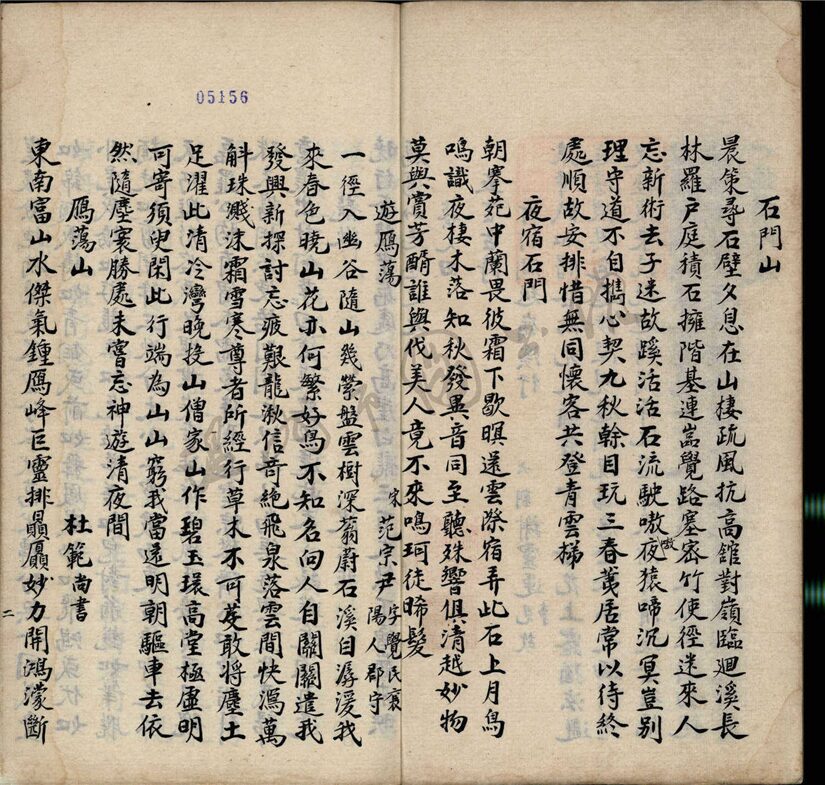 05156
石門山
晨策尋石壁夕息在山棲疏風抗高館對嶺臨迴溪長
林羅戶庭積石擁階基連嵓覺路塞密竹使徑迷來人
忘新術去子迷故蹊活活石流駛嗷嗷夜猿啼沉冥豈別
理守道不自攜心契九秋榦目玩三春荑居常以待終
處順故安排惜無同懷客共登青雲梯
夜宿石門
朝搴苑中蘭畏彼霜下歇暝還雲際宿弄此石上月鳥
鳴識夜棲木落知秋發異音同至聽殊響俱清越妙物
莫與賞芳醑誰與伐美人竟不來鳴珂徒晞髮
遊鴈蕩 宋范宗尹字覺民襄陽人郡守
一徑入幽谷隨山幾縈盤雲樹深蓊蔚石溪自潺湲我
來春色曉山花亦何繁好鳥不知名向人自關關遣我
發興新探討忘疲艱龍湫信奇絕飛泉落雲間快瀉萬
斛珠濺沫霜雪寒尊者所經行草木不可芟敢將塵土
足濯此清冷灣晚投山僧家山作碧玉環高堂極虛明
可寄須臾閑此行端為山山窮我當還明朝驅車去依
然隨塵寰勝處未嘗忘神遊清夜間
鴈蕩山 杜範尚書
東南富山水傑氣鍾鴈峰巨靈排贔屭妙力開鴻濛斷
二